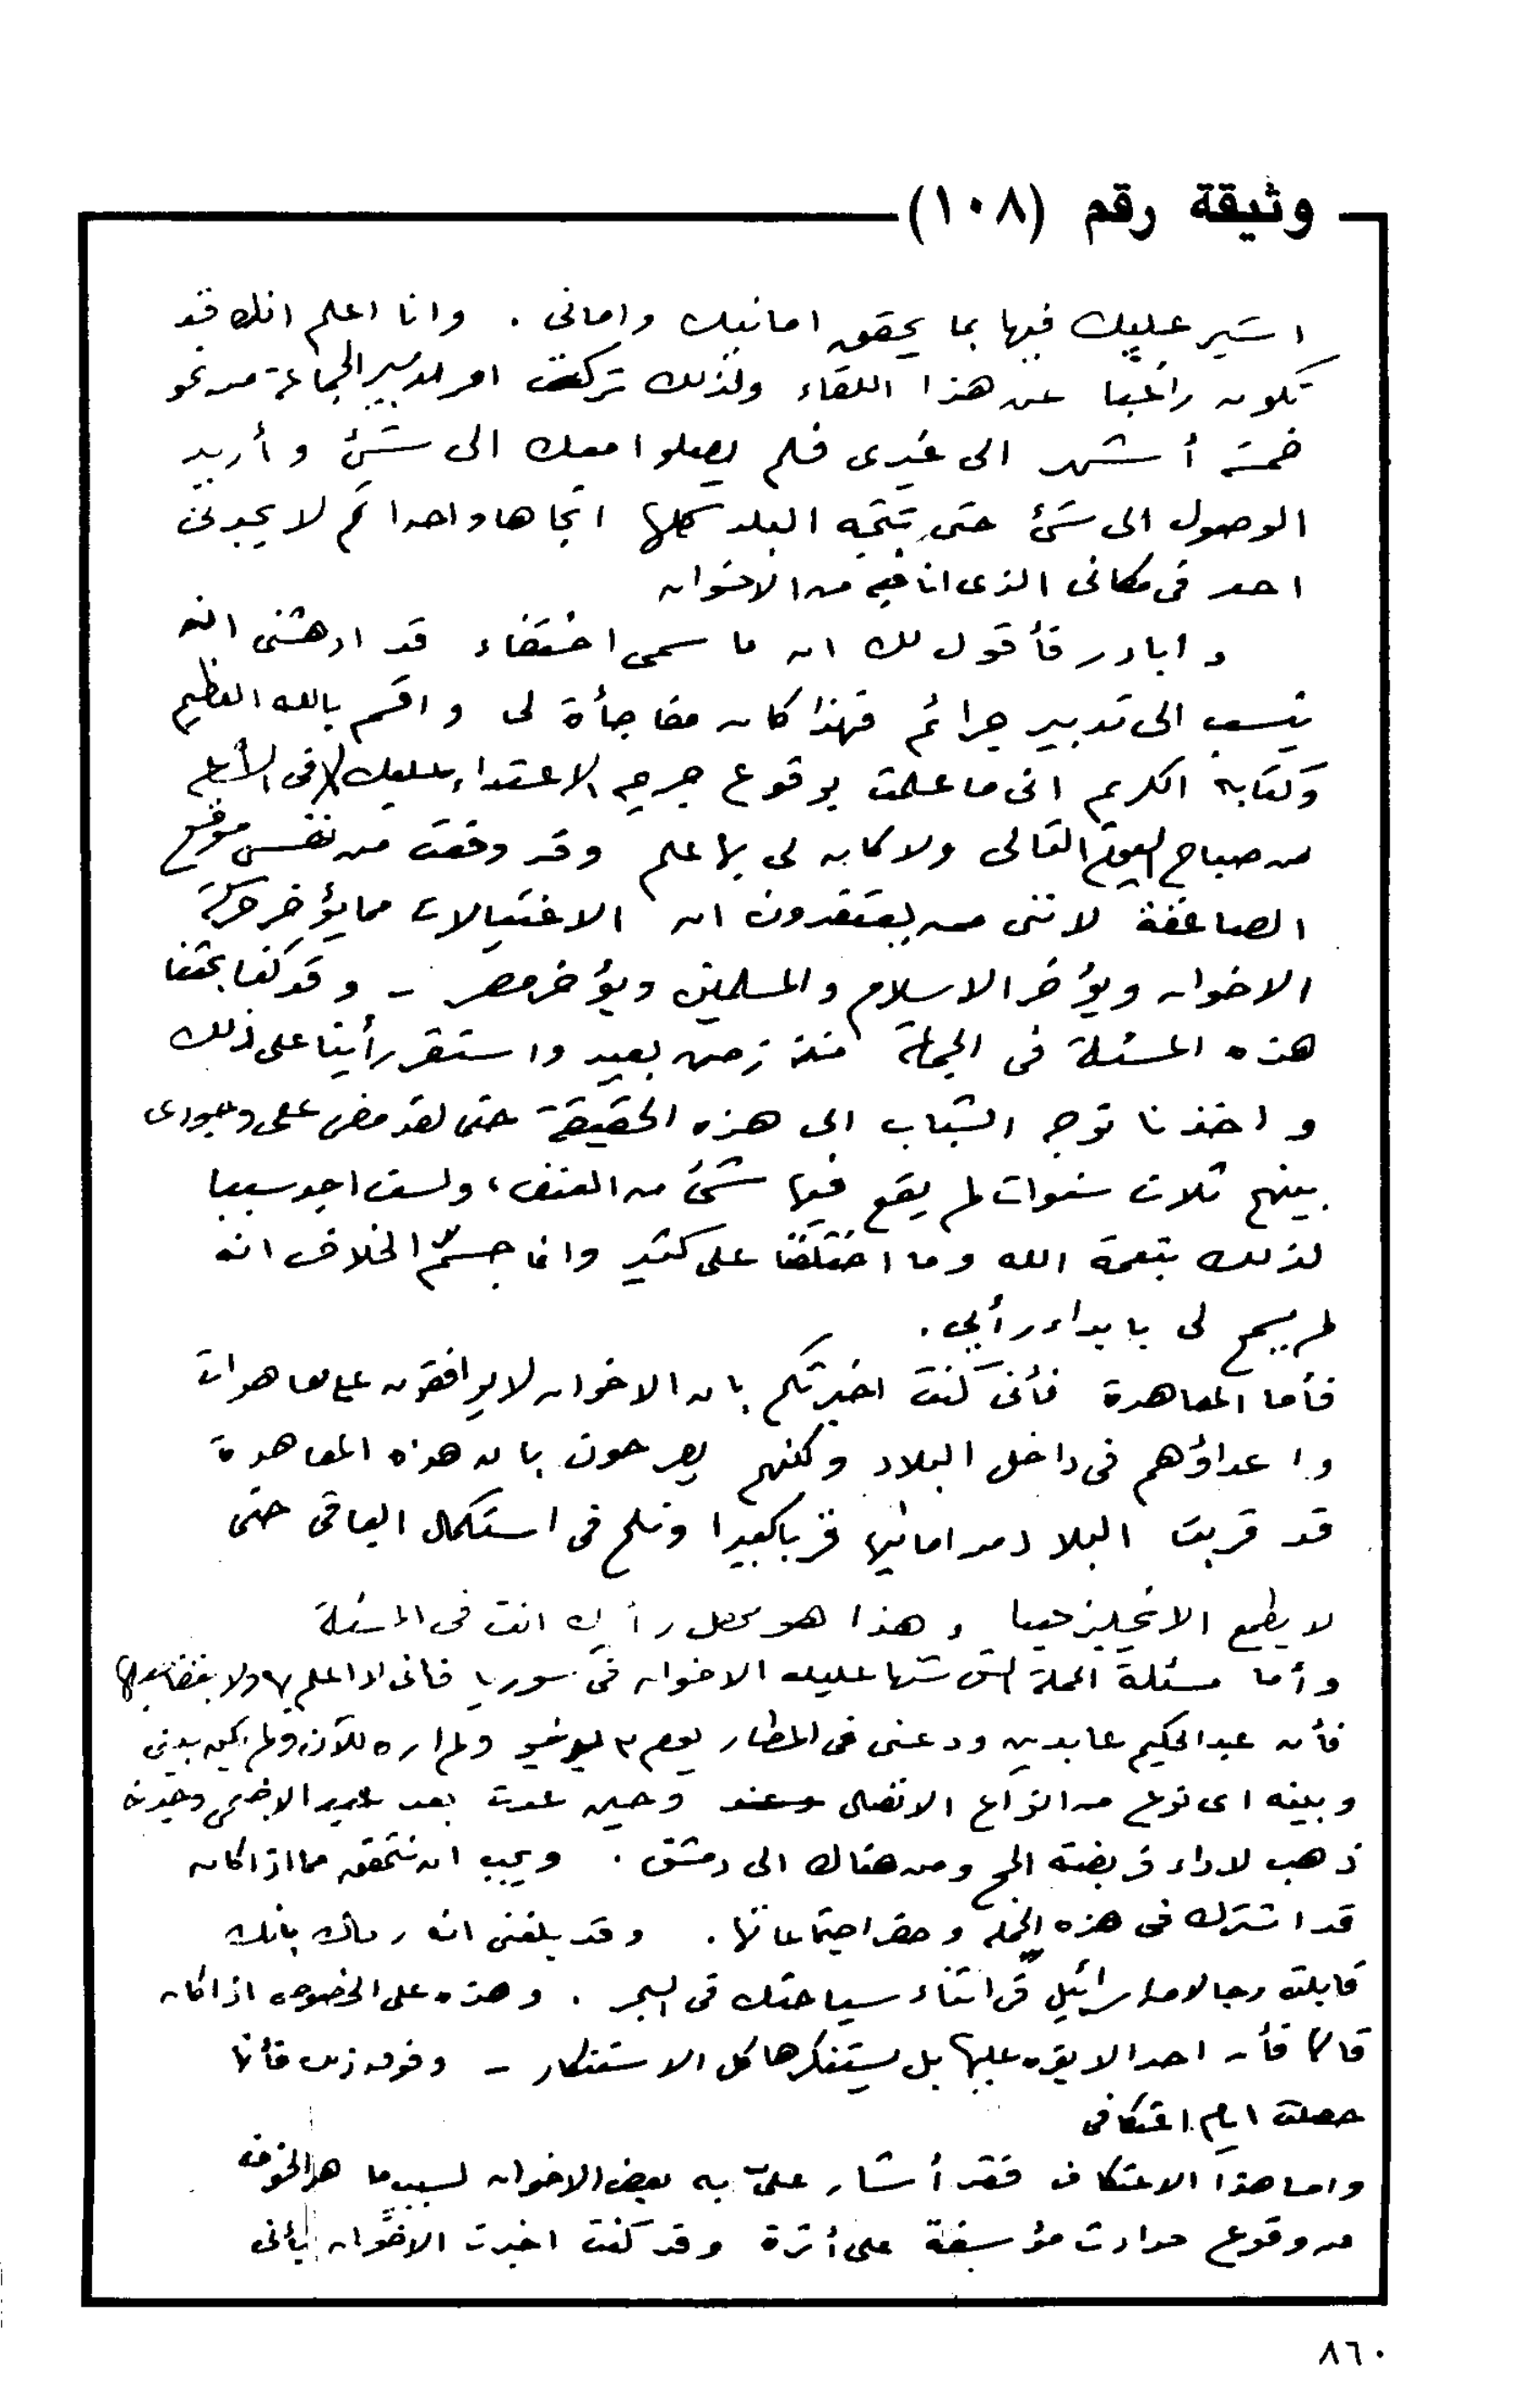 وثيقة رقم (١٠٨)
اسير عليك فيها بما يحقق امانيك وامانى . وانا اعلم انك قد
تكون راغبا عن هذا اللقاء ولذلك تركت امر تدبير الجماعة من نحو
خمسة أشهر الى غيرى فلم يصلوا معك الى شئ وأريد
الوصول الى شئ حتى تتجه البلد كلها اتجاها واحدا ثم لا يجدنى
احد فى مكانى الذى انا فيه من الاخوان
و ابادر فأقول لك ان ما سمى اختفاء قد ادهشنى انه
ينسب الى تدبير جرائم فهذا كان مفاجأة لى واقسم بالله العظيم
وكتابه الكريم انى ما علمت بوقوع جريمة الاعتداء عليك الا فى
من صباح اليوم التالى ولا كان لى بها علم وقد وقعت من نفسى موقع
الصاعقة لاننى ممن يعتقدون ان الاغتيالات مما يؤخر حركة
الاخوان ويؤخر الاسلام والمسلمين ويؤخر مصر - وقد كنا بحثنا
هذه المسئلة فى الجماعة منذ زمن بعيد واستقر رأينا على ذلك
و اخذنا نوجه الشباب الى هذه الحقيقة حتى لقد مضى على وجودى
بينهم ثلاث سنوات لم يقع فيها شئ من العنف ، ولست اجد سببا
لذلك بنعمة الله وما اختلفنا على كثير وانما جسّم الخلاف انه
لم يسمح لى بابداء رأيى .
فأما المعاهدة فأنى كنت اخبرتكم بان الاخوان لا يوافقون على معاهدات
و اعداؤهم فى داخل البلاد ولكنهم يصرحون بان هذه المعاهدة
قد قربت البلاد من امانيها قربا كبيرا ونلح فى استكمال الباقى حتى
لا يطمع الانجليز فينا وهذا هو محصل رأيك انت فى المسئلة
وأما مسئلة الحملة التى شنها عليك الاخوان فى سوريا فانى لا اعلم بها ولا بتفاصيلها
فأن عبد الحكيم عابدين ودعنى فى المطار يوم ٣ يونيو ولم اره للآن ولم يكن بينى
وبينه اى نوع من انواع الاتصال وحين عدت بعد عيد الاضحى وجدته
ذهب لاداء فريضة الحج ومن هناك الى دمشق . ويجب ان نتحقق مما اذا كان
قد اشترك فى هذه الحملة وحضر اجتماعاتها . وقد بلغنى انه رماك بانك
قابلت رجالا من اسرائيل فى اثناء سياحتك فى البحر . وهذه على الخصوص اذا كان
قالها فأن احدا لا يقره عليها بل يستنكرها كل الاستنكار - وفوق ذلك فأنها
حصلت ايام اعتكافى
واما هذا الاعتكاف فقد أشار علىّ به بعض الاخوان لسبب ما هو الخوف
من وقوع حوادث مؤسفة على أثره وقد كنت اخبرت الاخوان بأنى
٨٦٠